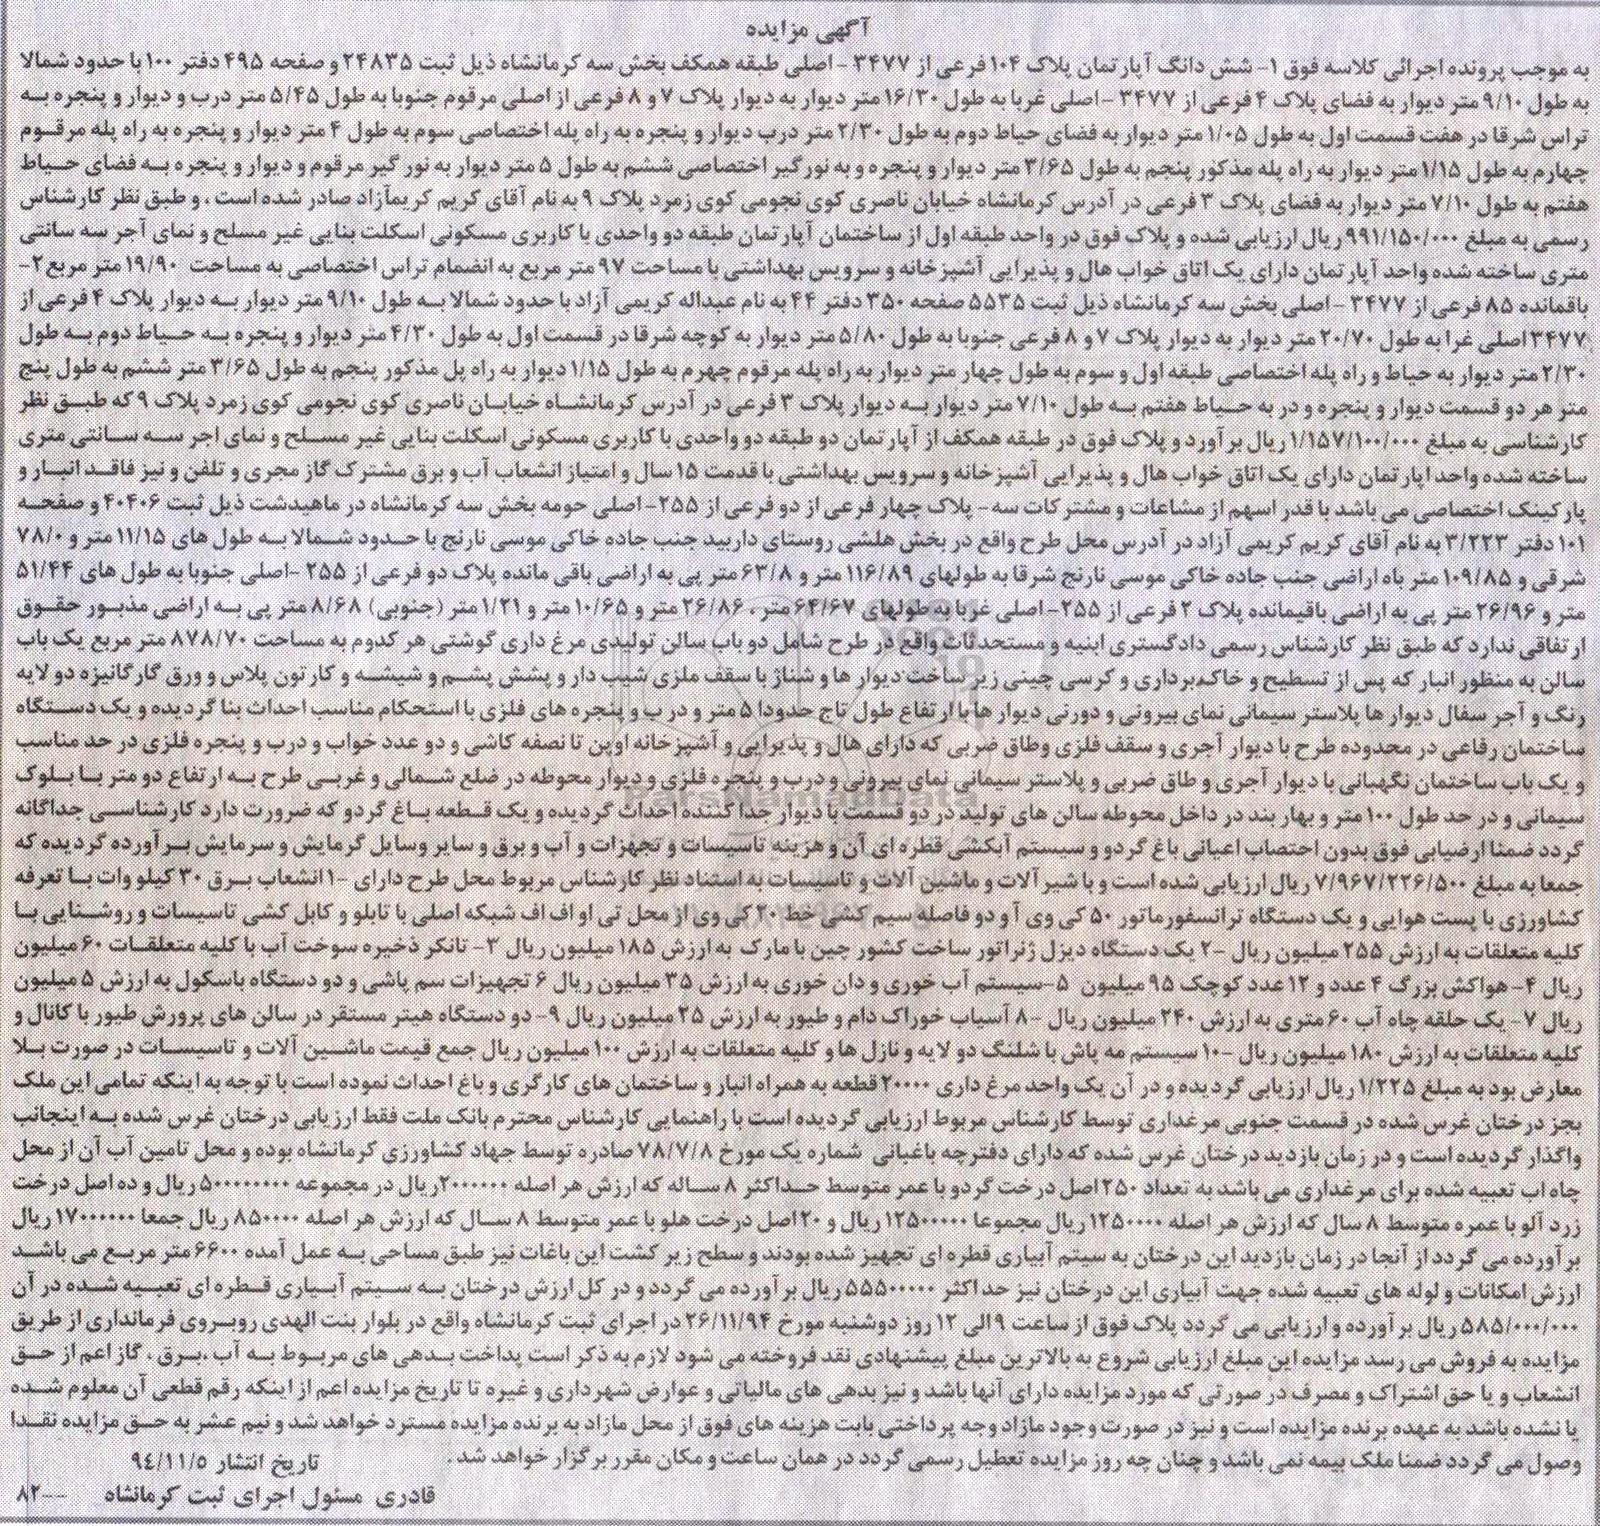 آگهی مزایده
به موجب پرونده اجرائی کلاسه فوق ۱- شش دانگ آپارتمان پلاک ۱۰۴ فرعی از ۳۴۷۷ - اصلی طبقه همکف بخش سه کرمانشاه ذیل ثبت ۲۴۸۳۵ و صفحه ۴۹۵ دفتر ۱۰۰ با حدود شمالا
به طول ۹/۱۰ متر دیوار به فضای پلاک ۴ فرعی از ۳۴۷۷ - اصلی غربا به طول ۱۶/۳۰ متر دیوار به دیوار پلاک ۷ و ۸ فرعی از اصلی مرقوم جنوبا به طول ۵/۴۵ متر درب و دیوار و پنجره به
تراس شرقا در هفت قسمت اول به طول ۱/۰۵ متر دیوار به فضای حیاط دوم به طول ۲/۳۰ متر درب دیوار و پنجره به راه پله اختصاصی سوم به طول ۴ متر دیوار و پنجره به راه پله مرقوم
چهارم به طول ۱/۱۵ متر دیوار به راه پله مذکور پنجم به طول ۳/۶۵ متر دیوار و پنجره و به نورگیر اختصاصی ششم به طول ۵ متر دیوار به نور گیر مرقوم و دیوار و پنجره به فضای حیاط
هفتم به طول ۷/۱۰ متر دیوار به فضای پلاک ۳ فرعی در آدرس کرمانشاه خیابان ناصری کوی نجومی کوی زمرد پلاک ۹ به نام آقای کریم کریمآزاد صادر شده است ، و طبق نظر کارشناس
رسمی به مبلغ ۹۹۱/۱۵۰/۰۰۰ ریال ارزیابی شده و پلاک فوق در واحد طبقه اول از ساختمان آپارتمان طبقه دو واحدی با کاربری مسکونی اسکلت بنایی غیر مسلح و نمای آجر سه سانتی
متری ساخته شده واحد آپارتمان دارای یک اتاق خواب هال و پذیرایی آشپزخانه و سرویس بهداشتی با مساحت ۹۷ متر مربع به انضمام تراس اختصاصی به مساحت ۱۹/۹۰ متر مربع ۲-
باقمانده ۸۵ فرعی از ۳۴۷۷ - اصلی بخش سه کرمانشاه ذیل ثبت ۵۵۳۵ صفحه ۳۵۰ دفتر ۴۴ به نام عبداله کریمی آزاد با حدود شمالا به طول ۹/۱۰ متر دیوار به دیوار پلاک ۴ فرعی از
۳۴۷۷ اصلی غرا به طول ۲۰/۷۰ متر دیوار به دیوار پلاک ۷ و ۸ فرعی جنوبا به طول ۵/۸۰ متر دیوار به کوچه شرقا در قسمت اول به طول ۴/۳۰ متر دیوار و پنجره به حیاط دوم به طول
۲/۳۰ متر دیوار به حیاط و راه پله اختصاصی طبقه اول و سوم به طول چهار متر دیوار به راه پله مرقوم چهرم به طول ۱/۱۵ دیوار به راه پل مذکور پنجم به طول ۳/۶۵ متر ششم به طول پنج
متر هر دو قسمت دیوار و پنجره و در به حیاط هفتم به طول ۷/۱۰ متر دیوار به دیوار پلاک ۳ فرعی در آدرس کرمانشاه خیابان ناصری کوی نجومی کوی زمرد پلاک ۹ که طبق نظر
کارشناسی به مبلغ ۱/۱۵۷/۱۰۰/۰۰۰ ریال برآورد و پلاک فوق در طبقه همکف از آپارتمان دو طبقه دو واحدی با کاربری مسکونی اسکلت بنایی غیر مسلح و نمای اجر سه سانتی متری
ساخته شده واحد اپارتمان دارای یک اتاق خواب هال و پذیرایی آشپزخانه و سرویس بهداشتی با قدمت ۱۵ سال و امتیاز انشعاب آب و برق مشترک گاز مجری و تلفن و نیز فاقد انبار و
پارکینک اختصاصی می باشد با قدر اسهم از مشاعات و مشترکات سه- پلاک چهار فرعی از دو فرعی از ۲۵۵- اصلی حومه بخش سه کرمانشاه در ماهیدشت ذیل ثبت ۴۰۴۰۶ و صفحه
۱۰۱ دفتر ۳/۲۲۳ به نام آقای کریم کریمی آزاد در آدرس محل طرح واقع در بخش هلشی روستای داربید جنب جاده خاکی موسی نارنج با حدود شمالا به طول های ۱۱/۱۵ متر و ۷۸/۰
شرقی و ۱۰۹/۸۵ متر باه اراضی جنب جاده خاکی موسی نارنج شرقا به طولهای ۱۱۶/۸۹ متر و ۶۳/۸ متر پی به اراضی باقی مانده پلاک دو فرعی از ۲۵۵ -اصلی جنوبا به طول های ۵۱/۴۴
متر و ۲۶/۹۶ متر پی به اراضی باقیمانده پلاک ۲ فرعی از ۲۵۵- اصلی غربا به طولهای ۶۴/۶۷ متر ، ۲۶/۸۶ متر و ۱۰/۶۵ متر و ۱/۲۱ متر (جنوبی) ۸/۶۸ متر پی به اراضی مذبور حقوق
ارتفاقی ندارد که طبق نظر کارشناس رسمی دادگستری ابنیه و مستحدثات واقع در طرح شامل دو باب سالن تولیدی مرغ داری گوشتی هر کدوم به مساحت ۸۷۸/۷۰ متر مربع یک باب
سالن به منظور انبار که پس از تسطیح و خاکبرداری و کرسی چینی زیر ساخت دیوار ها و شناژ با سقف ملزی شیب دار و پشش پشم و شیشه و کارتون پلاس و ورق گارگانیزه دو لایه
رنگ و آجر سفال دیوار ها پلاستر سیمانی نمای بیرونی و دورنی دیوار ها با ارتفاع طول تاج حدودا ۵ متر و درب و پنجره های فلزی با استحکام مناسب احداث بنا گردیده و یک دستگاه
ساختمان رفاعی در محدوده طرح با دیوار آجری و سقف فلزی وطاق ضربی که دارای هال و پذیرایی و آشپزخانه اوپن تا نصفه کاشی و دو عدد خواب و درب و پنجره فلزی در حد مناسب
و یک باب ساختمان نگهبانی با دیوار آجری و طاق ضربی و پلاستر سیمانی نمای بیرونی و درب و پنجره فلزی و دیوار محوطه در ضلع شمالی و غربی طرح به ارتفاع دو متر با بلوک
سیمانی و در حد طول ۱۰۰ متر و بهار بند در داخل محوطه سالن های تولید در دو قسمت با دیوار جدا کننده احداث گردیده و یک قطعه باغ گردو که ضرورت دارد کارشناسی جداگانه
گردد ضمنا ارضیابی فوق بدون احتصاب اعیانی باغ گردو و سیستم آبکشی قطره ای آن و هزینه تاسیسات و تجهزات و آب و برق و سایر وسایل گرمایش و سرمایش برآورده گردیده که
جمعا به مبلغ ۷/۹۶۷/۲۲۶/۵۰۰ ریال ارزیابی شده است و با شیر آلات و ماشین آلات و تاسیسات به استناد نظر کارشناس مربوط محل طرح دارای ۱- انشعاب برق ۳۰ کیلو وات با تعرفه
کشاورزی با پست هوایی و یک دستگاه ترانسفورماتور ۵۰ کی وی آ و دو فاصله سیم کشی خط ۲۰ کی وی از محل تی او اف اف شبکه اصلی با تابلو و کابل کشی تاسیسات و روشنایی با
کلیه متعلقات به ارزش ۲۵۵ میلیون ریال ۲- یک دستگاه دیزل ژنراتور ساخت کشور چین با مارک به ارزش ۱۸۵ میلیون ریال ۳- تانکر ذخیره سوخت آب با کلیه متعلقات ۶۰ میلیون
ریال ۴- هواکش بزرگ ۴ عدد و ۱۲ عدد کوچک ۹۵ میلیون ۵- سیستم آب خوری و دان خوری به ارزش ۳۵ میلیون ریال ۶ تجهیزات سم پاشی و دو دستگاه باسکول به ارزش ۵ میلیون
ریال ۷- یک حلقه چاه آب ۶۰ متری به ارزش ۲۴۰ میلیون ریال ۸- آسیاب خوراک دام و طیور به ارزش ۲۵ میلیون ریال ۹- دو دستگاه هیتر مستقر در سالن های پرورش طیور با کانال و
کلیه متعلقات به ارزش ۱۸۰ میلیون ریال ۱۰- سیستم مه پاش با شلنگ دو لایه و نازل ها و کلیه متعلقات به ارزش ۱۰۰ میلیون ریال جمع قیمت ماشین آلات و تاسیسات در صورت بلا
معارض بود به مبلغ ۱/۲۲۵ ریال ارزیابی گردیده و در آن یک واحد مرغ داری ۲۰۰۰۰ قطعه به همراه انبار و ساختمان های کارگری و باغ احداث نموده است با توجه به اینکه تمامی این ملک
بجز درختان غرس شده در قسمت جنوبی مرغداری توسط کارشناس مربوط ارزیابی گردیده است با راهنمایی کارشناس محترم بانک ملت فقط ارزیابی درختان غرس شده به اینجانب
واگذار گردیده است و در زمان بازدید درختان غرس شده که دارای دفترچه باغبانی شماره یک مورخ ۷۸/۷/۸ صادره توسط جهاد کشاورزی کرمانشاه بوده و محل تامین آب آن از محل
چاه اب تعبیه شده برای مرغداری می باشد به تعداد ۲۵۰ اصل درخت گردو با عمر متوسط حداکثر ۸ ساله که ارزش هر اصله ۲۰۰۰۰۰۰ ریال در مجموعه ۵۰۰۰۰۰۰۰۰ ریال و ده اصل درخت
زرد آلو با عمره متوسط ۸ سال که ارزش هر اصله ۱۲۵۰۰۰۰ ریال مجموعا ۱۲۵۰۰۰۰۰ ریال و ۲۰ اصل درخت هلو با عمر متوسط ۸ سال که ارزش هر اصله ۸۵۰۰۰۰ ریال جمعا ۱۷۰۰۰۰۰۰ ریال
برآورده می گردد از آنجا در زمان بازدید این درختان به سیتم آبیاری قطره ای تجهیز شده بودند و سطح زیر کشت این باغات نیز طبق مساحی به عمل آمده ۶۶۰۰ متر مربع می باشد
ارزش امکانات و لوله های تعبیه شده جهت آبیاری این درختان نیز حداکثر ۵۵۵۰۰۰۰۰ ریال برآورده می گردد و در کل ارزش درختان به سیتم آبیاری قطره ای تعبیه شده در آن
۵۸۵/۰۰۰/۰۰۰ ریال برآورده و ارزیابی می گردد پلاک فوق از ساعت ۹ الی ۱۲ روز دوشنبه مورخ ۲۶/۱۱/۹۴ در اجرای ثبت کرمانشاه واقع در بلوار بنت الهدی روبروی فرمانداری از طریق
مزایده به فروش می رسد مزایده این مبلغ ارزیابی شروع به بالاترین مبلغ پیشنهادی نقد فروخته می شود لازم به ذکر است پداخت بدهی های مربوط به آب ،برق ، گاز اعم از حق
انشعاب و یا حق اشتراک و مصرف در صورتی که مورد مزایده دارای آنها باشد و نیز بدهی های مالیاتی و عوارض شهرداری و غیره تا تاریخ مزایده اعم از اینکه رقم قطعی آن معلوم شده
یا نشده باشد به عهده برنده مزایده است و نیز در صورت وجود مازاد وجه پرداختی بابت هزینه های فوق از محل مازاد به برنده مزایده مسترد خواهد شد و نیم عشر به حق مزایده نقدا
وصول می گردد ضمنا ملک بیمه نمی باشد و چنان چه روز مزایده تعطیل رسمی گردد در همان ساعت و مکان مقرر برگزار خواهد شد.
تاریخ انتشار ۹۴/۱۱/۵
قادری مسئول اجرای ثبت کرمانشاه ---۸۲